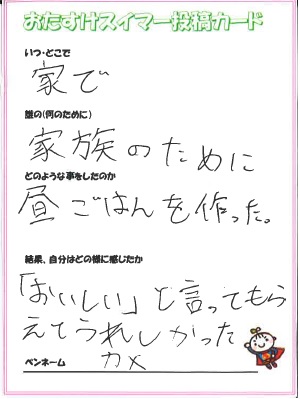 おたすけスイマー投稿カード
いつ・どこで
家で
誰の(何のために)
家族のために
どのような事をしたのか
昼ごはんを作った。
結果、自分はどの様に感じたか
「おいしい」と言ってもら
えてうれしかった
ペンネーム カメ